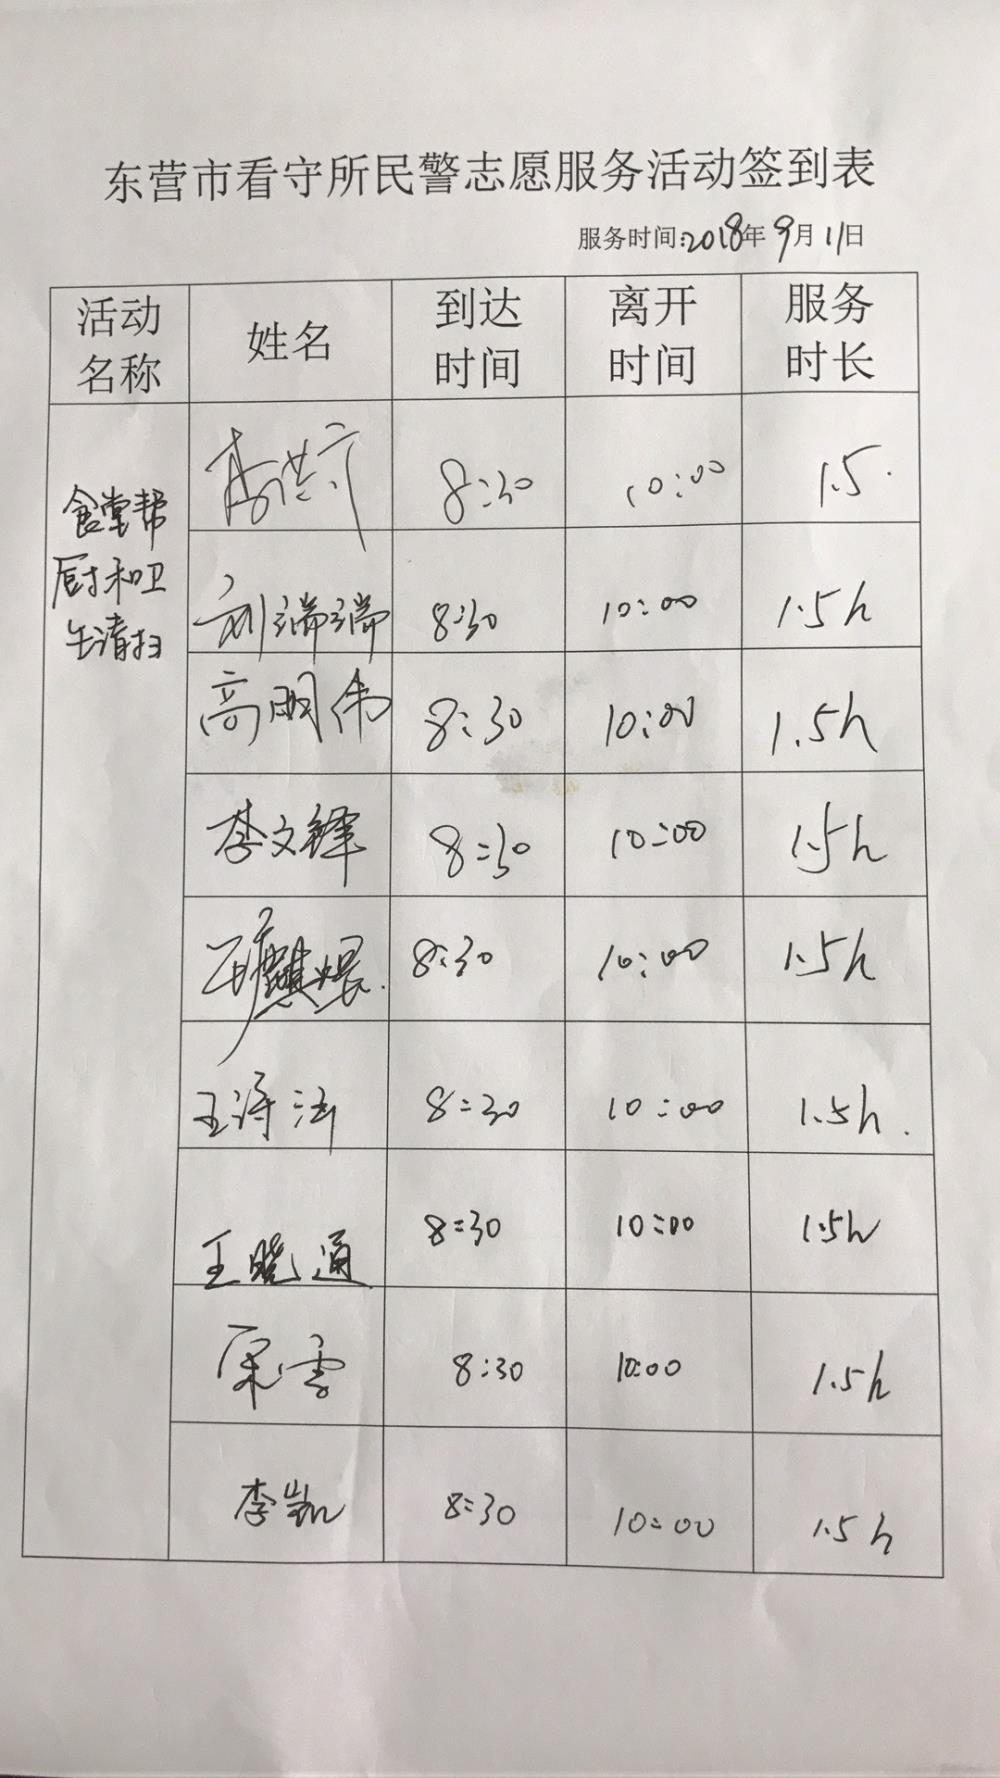 东营市看守所民警志愿服务活动签到表
服务时间:2018年9月11日
活动名称 姓名 到达时间 离开时间 服务时长
食堂帮
厨和卫
生清扫
8:30 10:00 1.5
刘端端 8:30 10:00 1.5h
高明伟 8:30 10:00 1.5h
李文锋 8:30 10:00 1.5h
8:30 10:00 1.5h
王 8:30 10:00 1.5h
王晓通 8:30 10:00 1.5h
雪 8:30 10:00 1.5h
李凯 8:30 10:00 1.5h